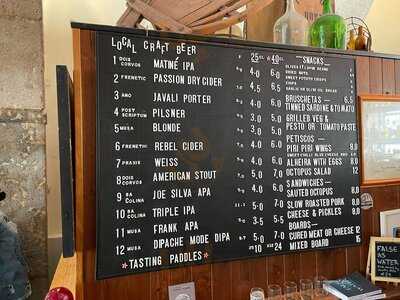 LOCAL CRAFT BEER
25cl 40cl
1 DOIS CORVOS MATINÉ IPA 4.0 6.0
2 FRENETIC PASSION DRY CIDER 4.5 6.5
3 ANO JAVALI PORTER 4.0 6.0
4 POST SCRIPTUM PILSNER 3.0 5.0
5 MUSA BLONDE 3.0 5.0
6 FRENETIC REBEL CIDER 4.0 6.0
7 PRAXIS WEISS 4.0 6.0
8 DOIS CORVOS AMERICAN STOUT 5.0 7.0
9 BA COLINA JOE SILVA APA 4.0 6.0
10 BA COLINA TRIPLE IPA 5.0 7.0
11 MUSA FRANK APA 3.5 5.5
12 MUSA DIPACHE MODE DIPA 5.0 7.0
* TASTING PADDLES * 10 24
— SNACKS —
OLIVES
MIXED NUTS
SWEET POTATO CRISPS
CHIPS
GARLIC OR OLIVE OIL BREAD
BRUSCHETAS — 6.5
TINNED SARDINE & TOMATO
GRILLED VEG &
PESTO OR TOMATO PASTE
PETISCOS —
PIRI PIRI WINGS 9.0
ALHEIRA WITH EGGS 8.0
OCTOPUS SALAD 12
SANDWICHES —
SAUTED OCTOPUS 8.0
SLOW ROASTED PORK 8.0
CHEESE & PICKLES 8.0
BOARDS —
CURED MEAT OR CHEESE 12
MIXED BOARD 15
FALSE AS WATER